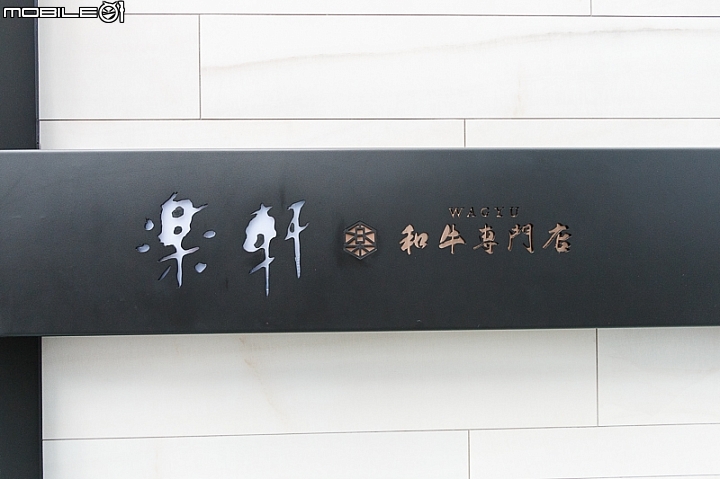 MOBILE01
楽軒
楽
WAGYU
和牛専門店